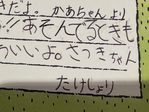 きだよ。かあちゃんより
!!あそんでるときも
いいよ。さつきちゃん
たけしより